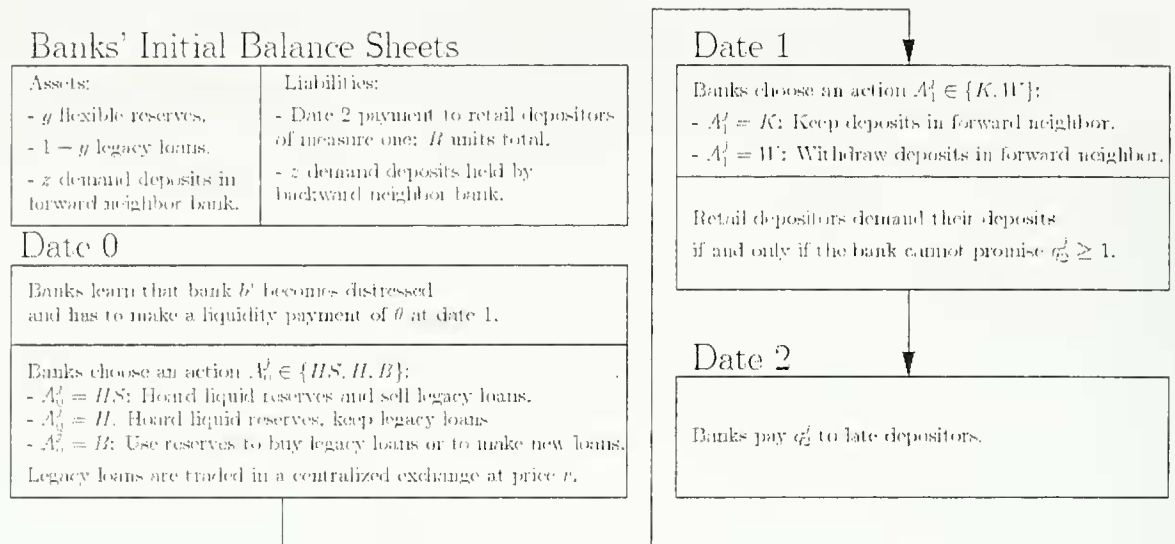 Banks' Initial Balance Sheets
Assets:
- y flexible reserves.
- 1 − y legacy loans.
- z demand deposits in
forward neighbor bank.
Liabilities:
- Date 2 payment to retail depositors
of measure one: R units total.
- z demand deposits held by
backward neighbor bank.
Date 0
Banks learn that bank b⁰ becomes distressed
and has to make a liquidity payment of θ at date 1.
Banks choose an action A₀ʲ ∈ {HS, H, B}:
- A₀ʲ = HS: Hoard liquid reserves and sell legacy loans.
- A₀ʲ = H. Hoard liquid reserves, keep legacy loans
- A₀ʲ = B: Use reserves to buy legacy loans or to make new loans.
Legacy loans are traded in a centralized exchange at price r.
Date 1
Banks choose an action A₁ʲ ∈ {K, W}:
- A₁ʲ = K: Keep deposits in forward neighbor.
- A₁ʲ = W: Withdraw deposits in forward neighbor.
Retail depositors demand their deposits
if and only if the bank cannot promise q₂ʲ ≥ 1.
Date 2
Banks pay q₂ʲ to late depositors.